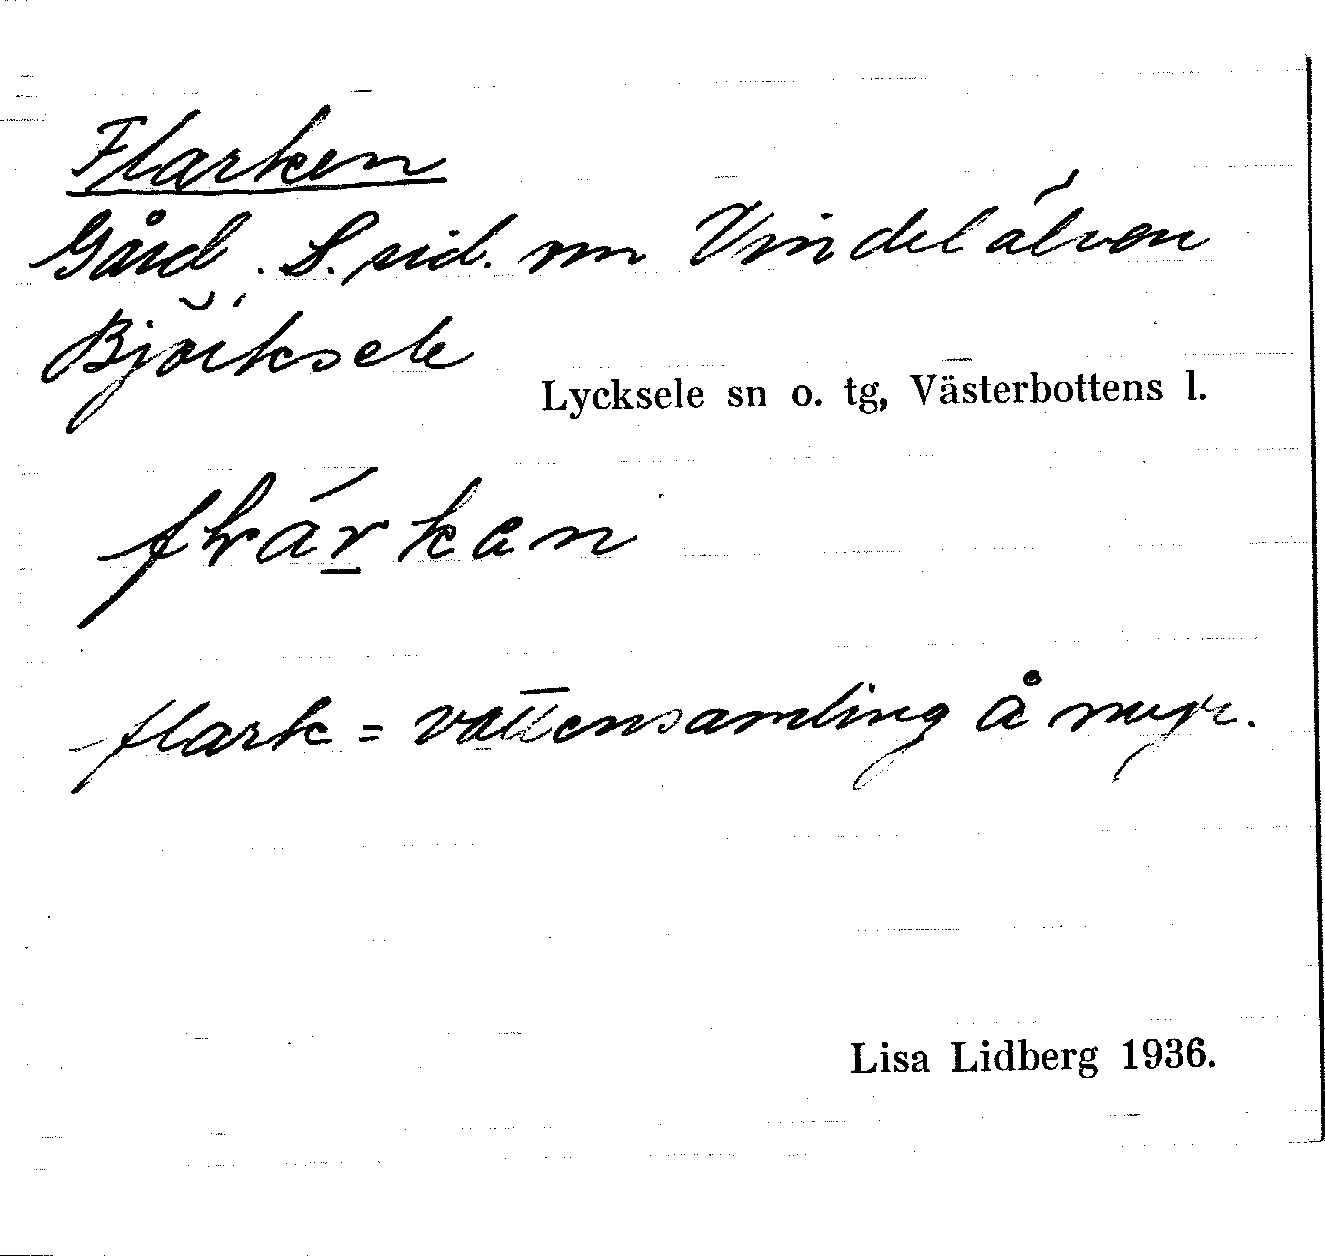 Flarken
Gård. S. sid. om Vindelälven
Björksele
Lycksele sn o. tg, Västerbottens l.
flark = vattensamling å myr.
Lisa Lidberg 1936.